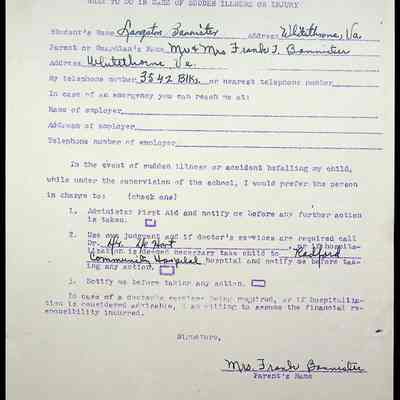 WHAT TO DO IN CASE OF SUDDEN ILLNESS OR INJURY
Student's Name Langston Bannister Address Whitethorne, Va.
Parent or Guardian's Name Mr & Mrs Frank T. Bannister
Address Whitethorne Va.
My telephone number 3542 Blks. or nearest telephone number
In case of an emergency you can reach me at:
Name of employer
Address of employer
Telephone number of employer
In the event of sudden illness or accident befalling my child,
while under the supervision of the school, I would prefer the person
in charge to: (check one)
1. Administer First Aid and notify me before any further action
is taken.
2. Use own judgment and if doctor's services are required call
Dr. Dr. De Hart or if hospita-
lization is deemed necessary take child to Radford
Community Hospital hospital and notify me before tak-
ing any action.
3. Notify me before taking any action.
In case of a doctor's services being required, or if hospitaliza-
tion is considered advisable, I am willing to assume the financial re-
sponsibility incurred.
Signature,
Mrs. Frank Bannister
Parent's Name